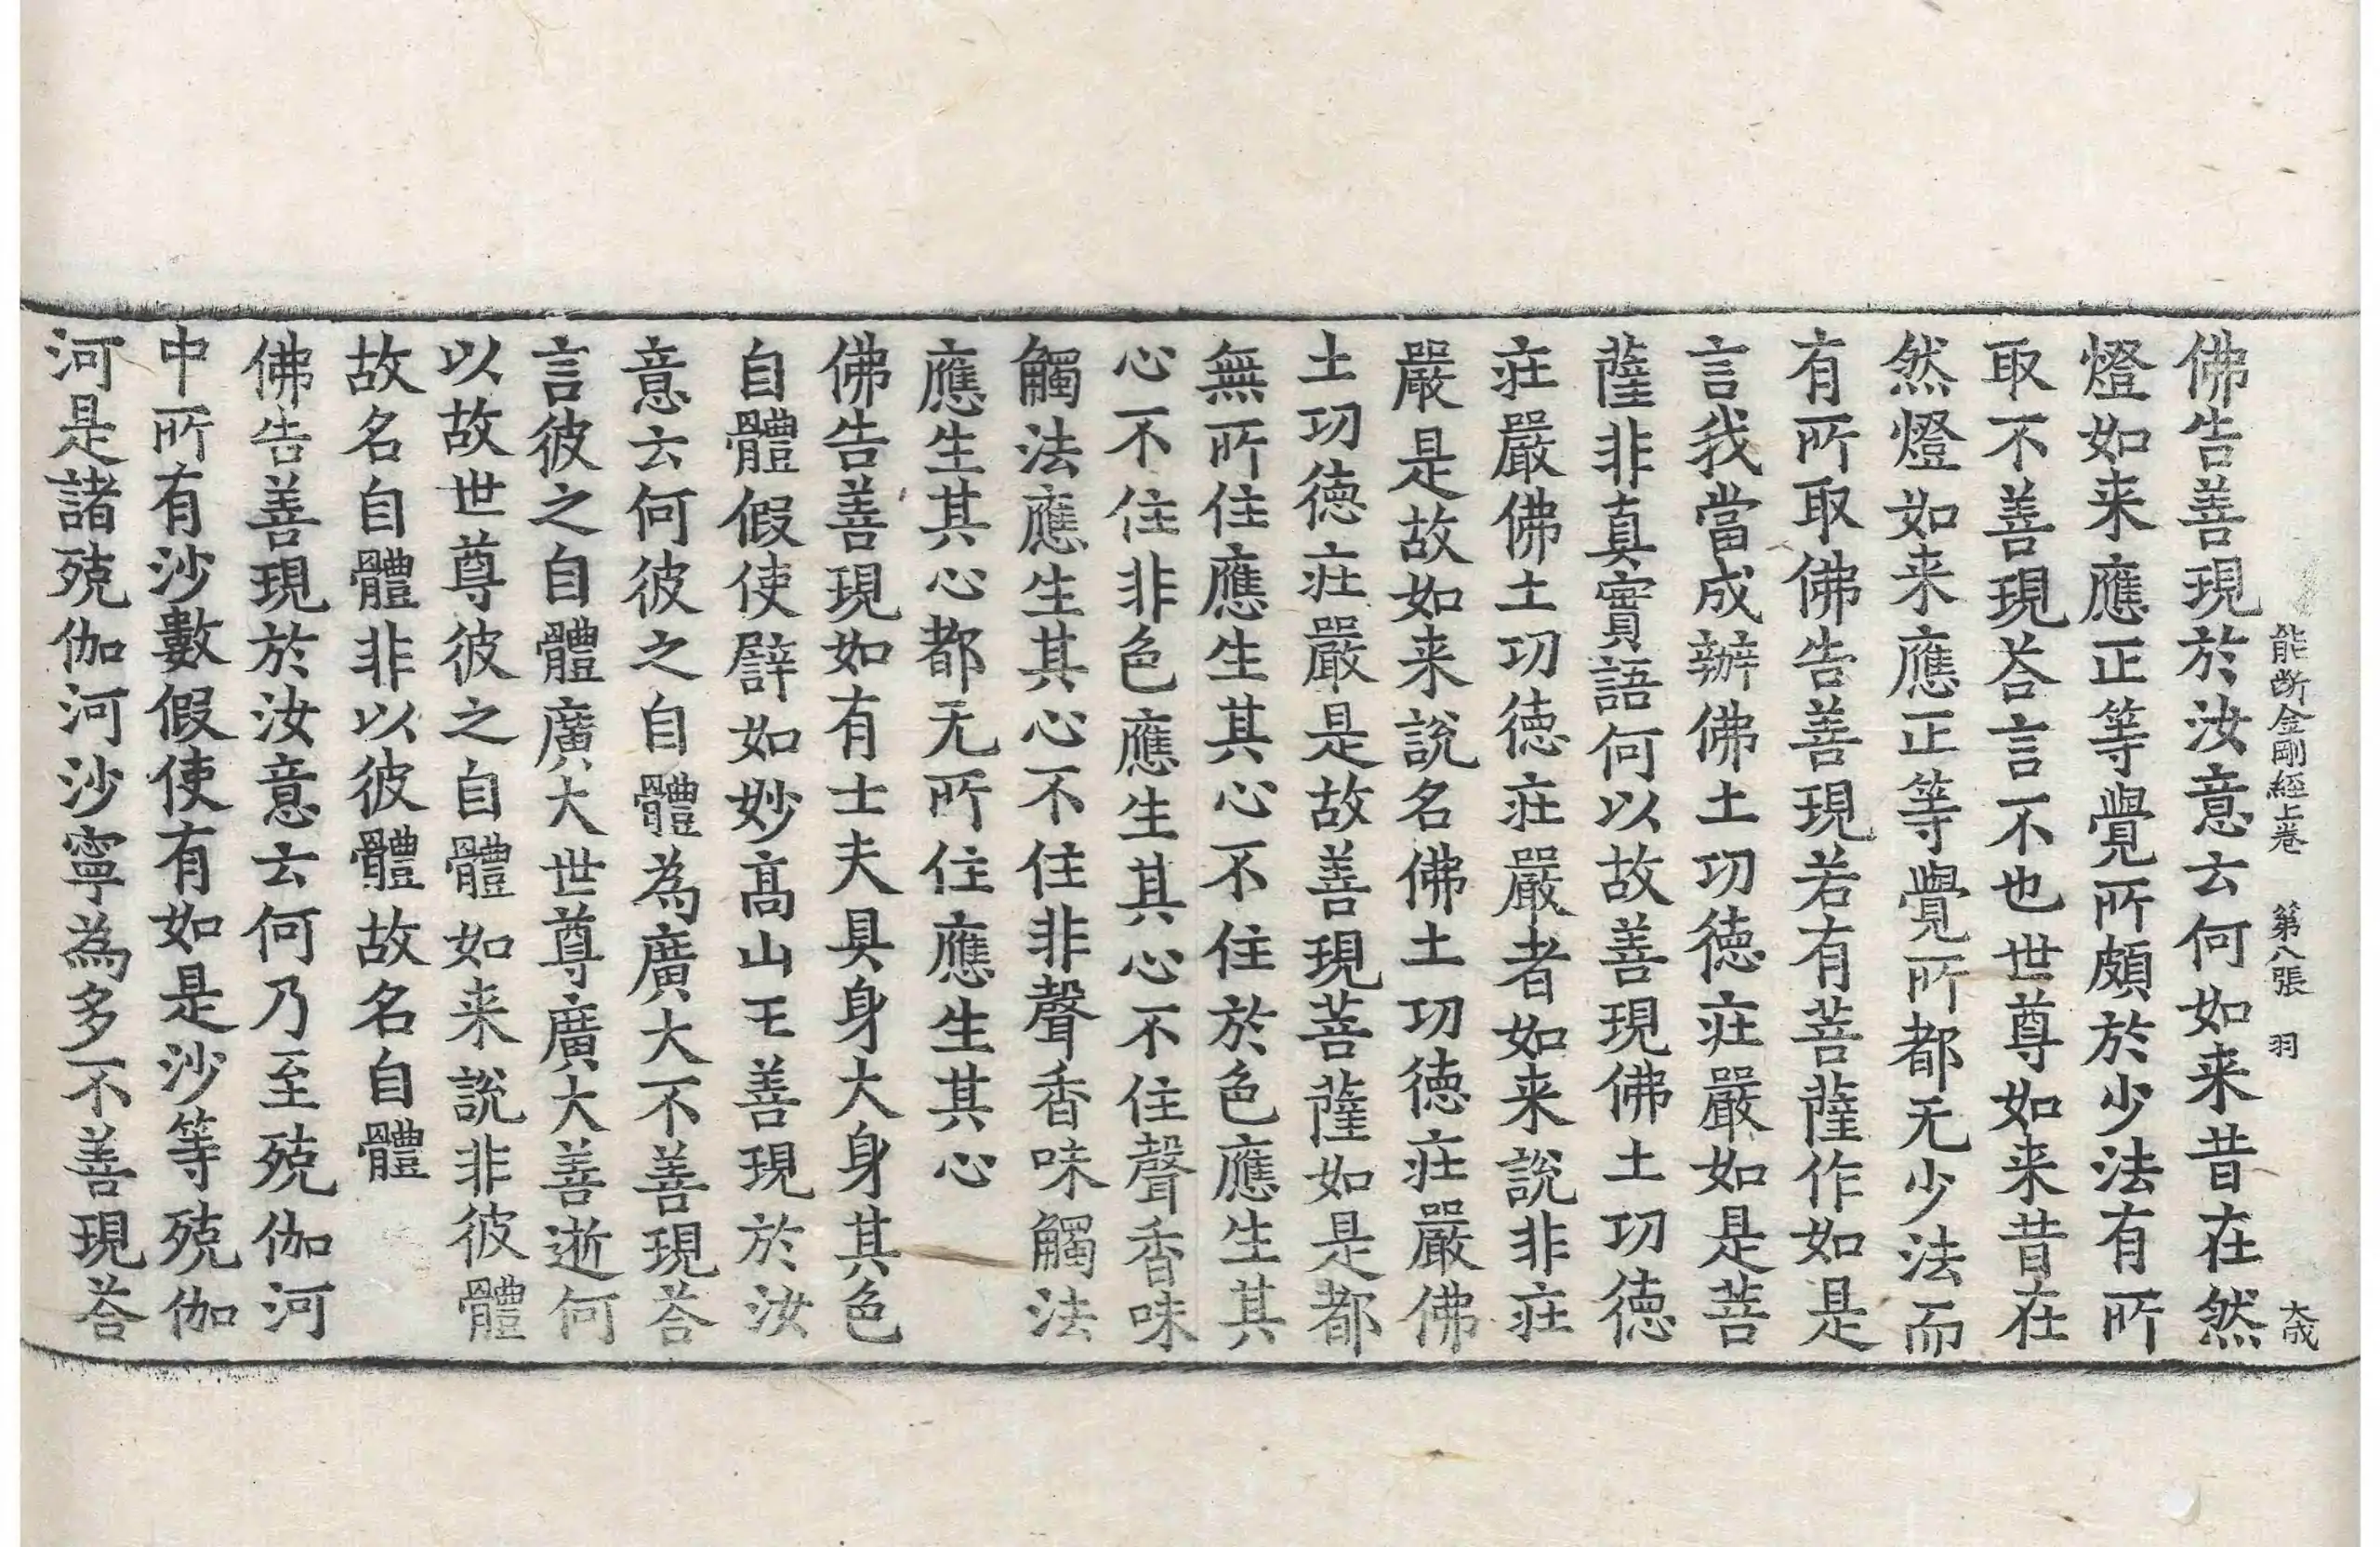 能断金剛經上卷 第八張 羽 大成
佛告善現於汝意云何如来昔在然
燈如来應正等覺所頗於少法有所
取不善現荅言不也世尊如来昔在
然燈如来應正等覺所都无少法而
有所取佛告善現若有菩薩作如是
言我當成辦佛土功德莊嚴如是菩
薩非真實語何以故善現佛土功德
莊嚴佛土功德莊嚴者如来說非莊
嚴是故如来說名佛土功德莊嚴佛
土功德莊嚴是故善現菩薩如是都
無所住應生其心不住於色應生其
心不住非色應生其心不住聲香味
觸法應生其心不住非聲香味觸法
應生其心都无所住應生其心
佛告善現如有士夫具身大身其色
自體假使譬如妙高山王善現於汝
意云何彼之自體為廣大不善現荅
言彼之自體廣大世尊廣大善逝何
以故世尊彼之自體如来說非彼體
故名自體非以彼體故名自體
佛告善現於汝意云何乃至殑伽河
中所有沙數假使有如是沙等殑伽
河是諸殑伽河沙寧為多不善現荅